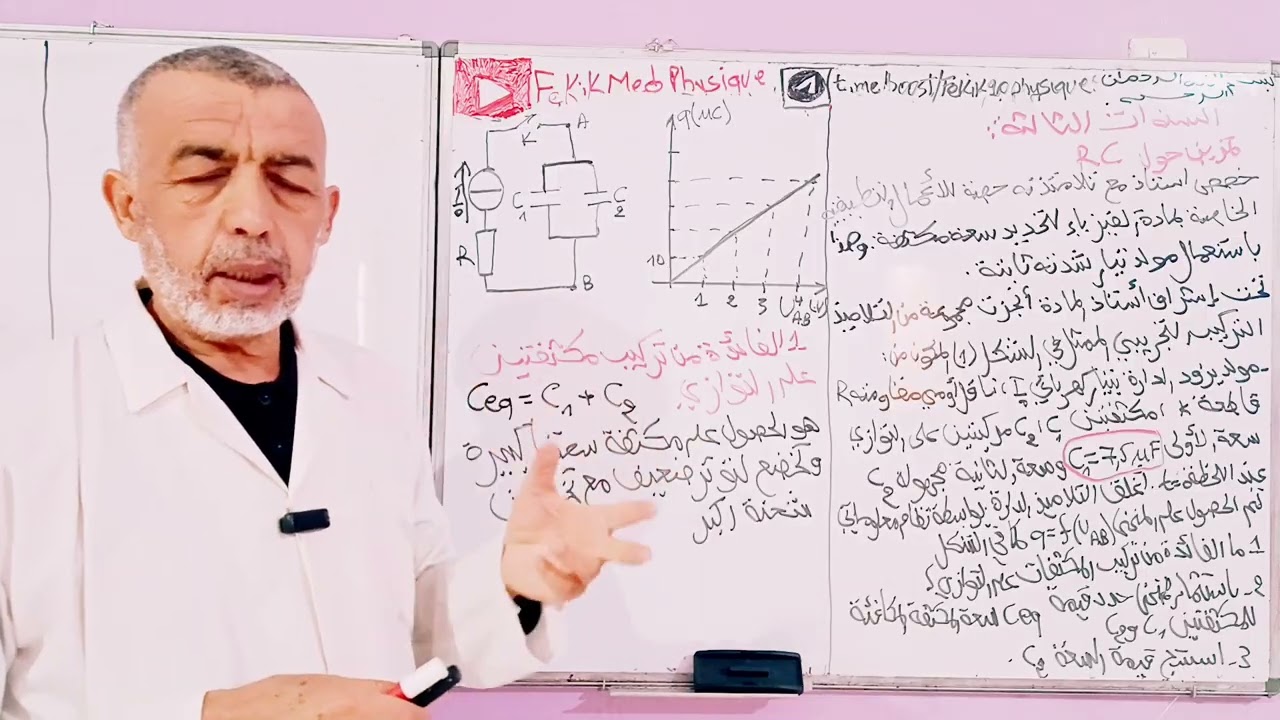 FeKiK Med Physique
بسم الله الرحمان الرحيم
السنوات الثالثة:
تمرين حول RC
خصص استاذ مع تلامذته حصة الأعمال التطبيقية
الخاصة بمادة لفيزياء لتحديد سعة مكثفة وهذا
باستعمال مولد تيار شدته ثابتة.
تحت إشراف أستاذ المادة أنجزت مجموعة من التلاميذ
التركيب التجريبي الممثل في الشكل (1) المكون من:
- مولد يزود الدارة بتيار كهربائي I₀، ناقل أومي مقاومته R
قاطعة K، مكثفتين C₁ و C₂ مربيتين على التوازي
سعة الأولى C₁=7,5 µF وسعة الثانية مجهولة C₂
عند اللحظة t=0 تغلق التلاميذ الدارة بواسطة نظام معلوماتي
تم الحصول على المنحنى q=f(U_AB) كما في الشكل
1 ما الفائدة من تركيب المكثفات على التوازي؟
2- باستثمار المنحنى حدد قيمة Ceq السعة المكثفة المكافئة
للمكثفتين C₁ و C₂
3- استنتج قيمة السعة C₂.
q(µC)
10
1 2 3 4
U_AB (V)
K A
C₁ C₂
I₀
R
B
1 الفائدة من تركيب مكثفتين
على التوازي
Ceq = C₁ + C₂
هو الحصول على مكثفة سعتها كبيرة
وتخضع لتوتر ضعيف مع
شحنة اكبر